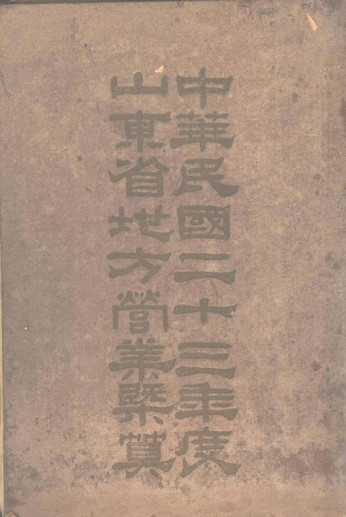 中華民國二十三年度
山東省地方營業槩算